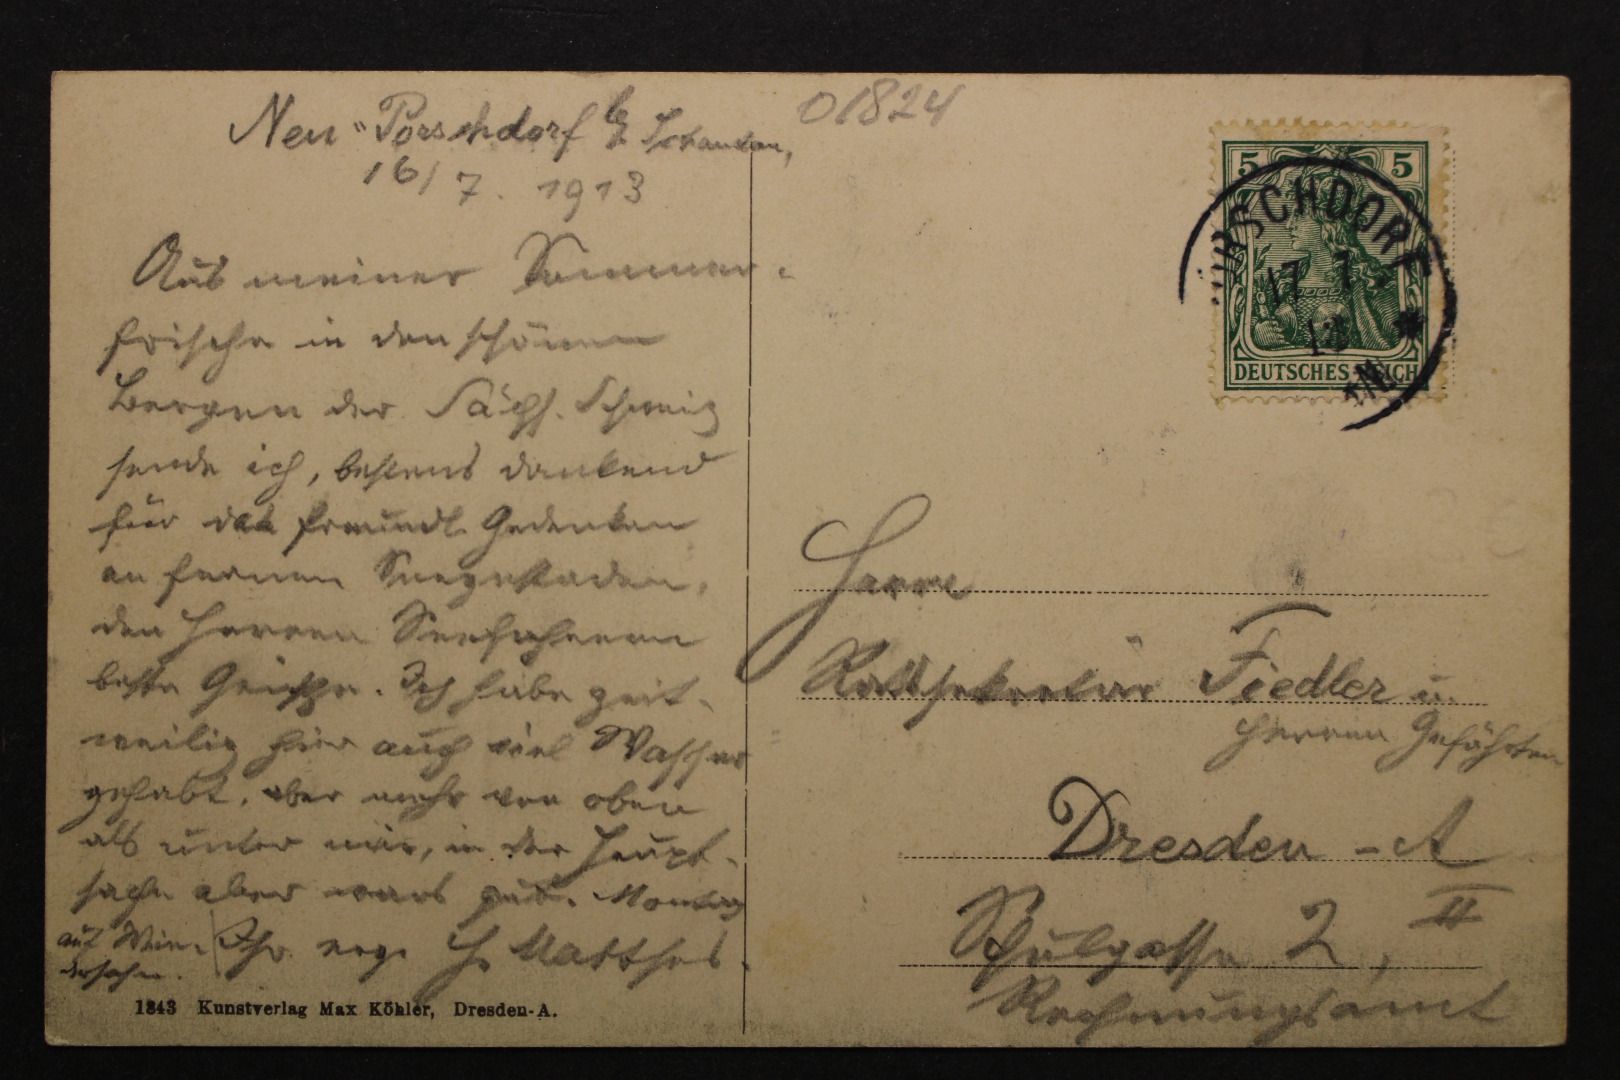 Neu-Porschdorf b. Schandau,
16/7. 1913
Aus meiner Sommer-
frische in den schönen
Bergen der Sächs. Schweiz
sende ich, bestens dankend
für das freundl. Gedenken
an fernen Seegestaden,
den Herren Seefahrern
beste Grüße. Ich habe zeit-
weilig hier auch viel Wasser
gehabt, aber mehr von oben
als unter mir, in der Haupt-
sache aber wars gut. Montag
auf Wie-
dersehn.
Ihr erg. H. Matthes.
1843 Kunstverlag Max Köhler, Dresden-A.
01824
5 5
DEUTSCHES REICH
PORSCHDORF
17 7
13
Herrn
Ratssekretär Fiedler u.
Herren Gefährten
Dresden-A
Schulgasse 2, II
Rechnungsamt